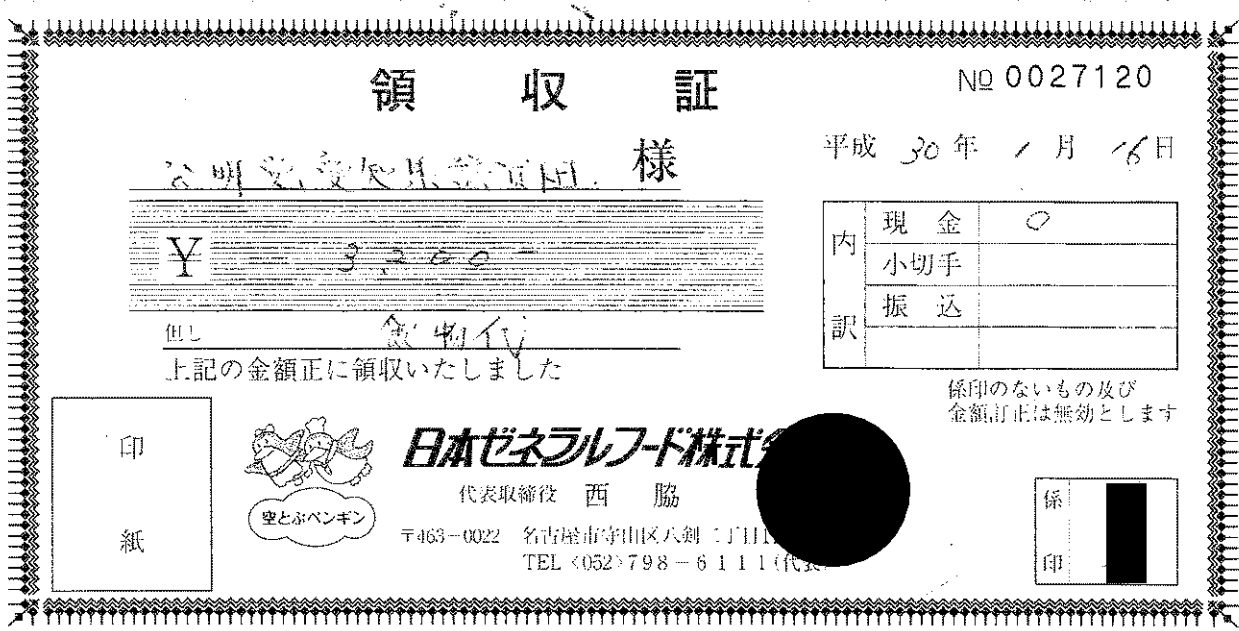 領収証
№ 0027120
平成 30 年 1 月 16 日
公明党愛知県議員団 様
¥ 3,200-
但し 飲物代
上記の金額正に領収いたしました
内訳
現金 0
小切手
振込
係印のないもの及び
金額訂正は無効とします
印紙
空とぶペンギン
日本ゼネラルフード株式
代表取締役 西脇
〒463-0022 名古屋市守山区八剣二丁目
TEL <052>798-6111(代表
係印